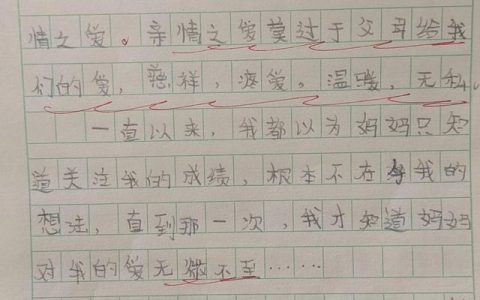 情之爱。亲情之爱莫过于父母给我
们的爱，慈祥，疼爱。温暖，无私。
一直以来，我都以为妈妈只知
道关注我的成绩，根本不在乎我的
想法，直到那一次，我才知道妈妈
对我的爱无微不至……